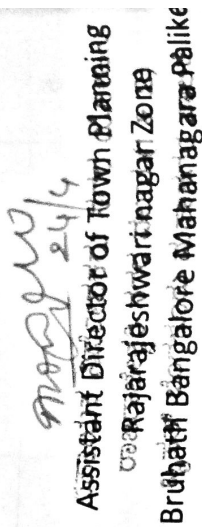 24/4
Assistant Director of Town Planning
Rajarajeshwari nagar Zone
Bruhath Bangalore Mahanagara Palike